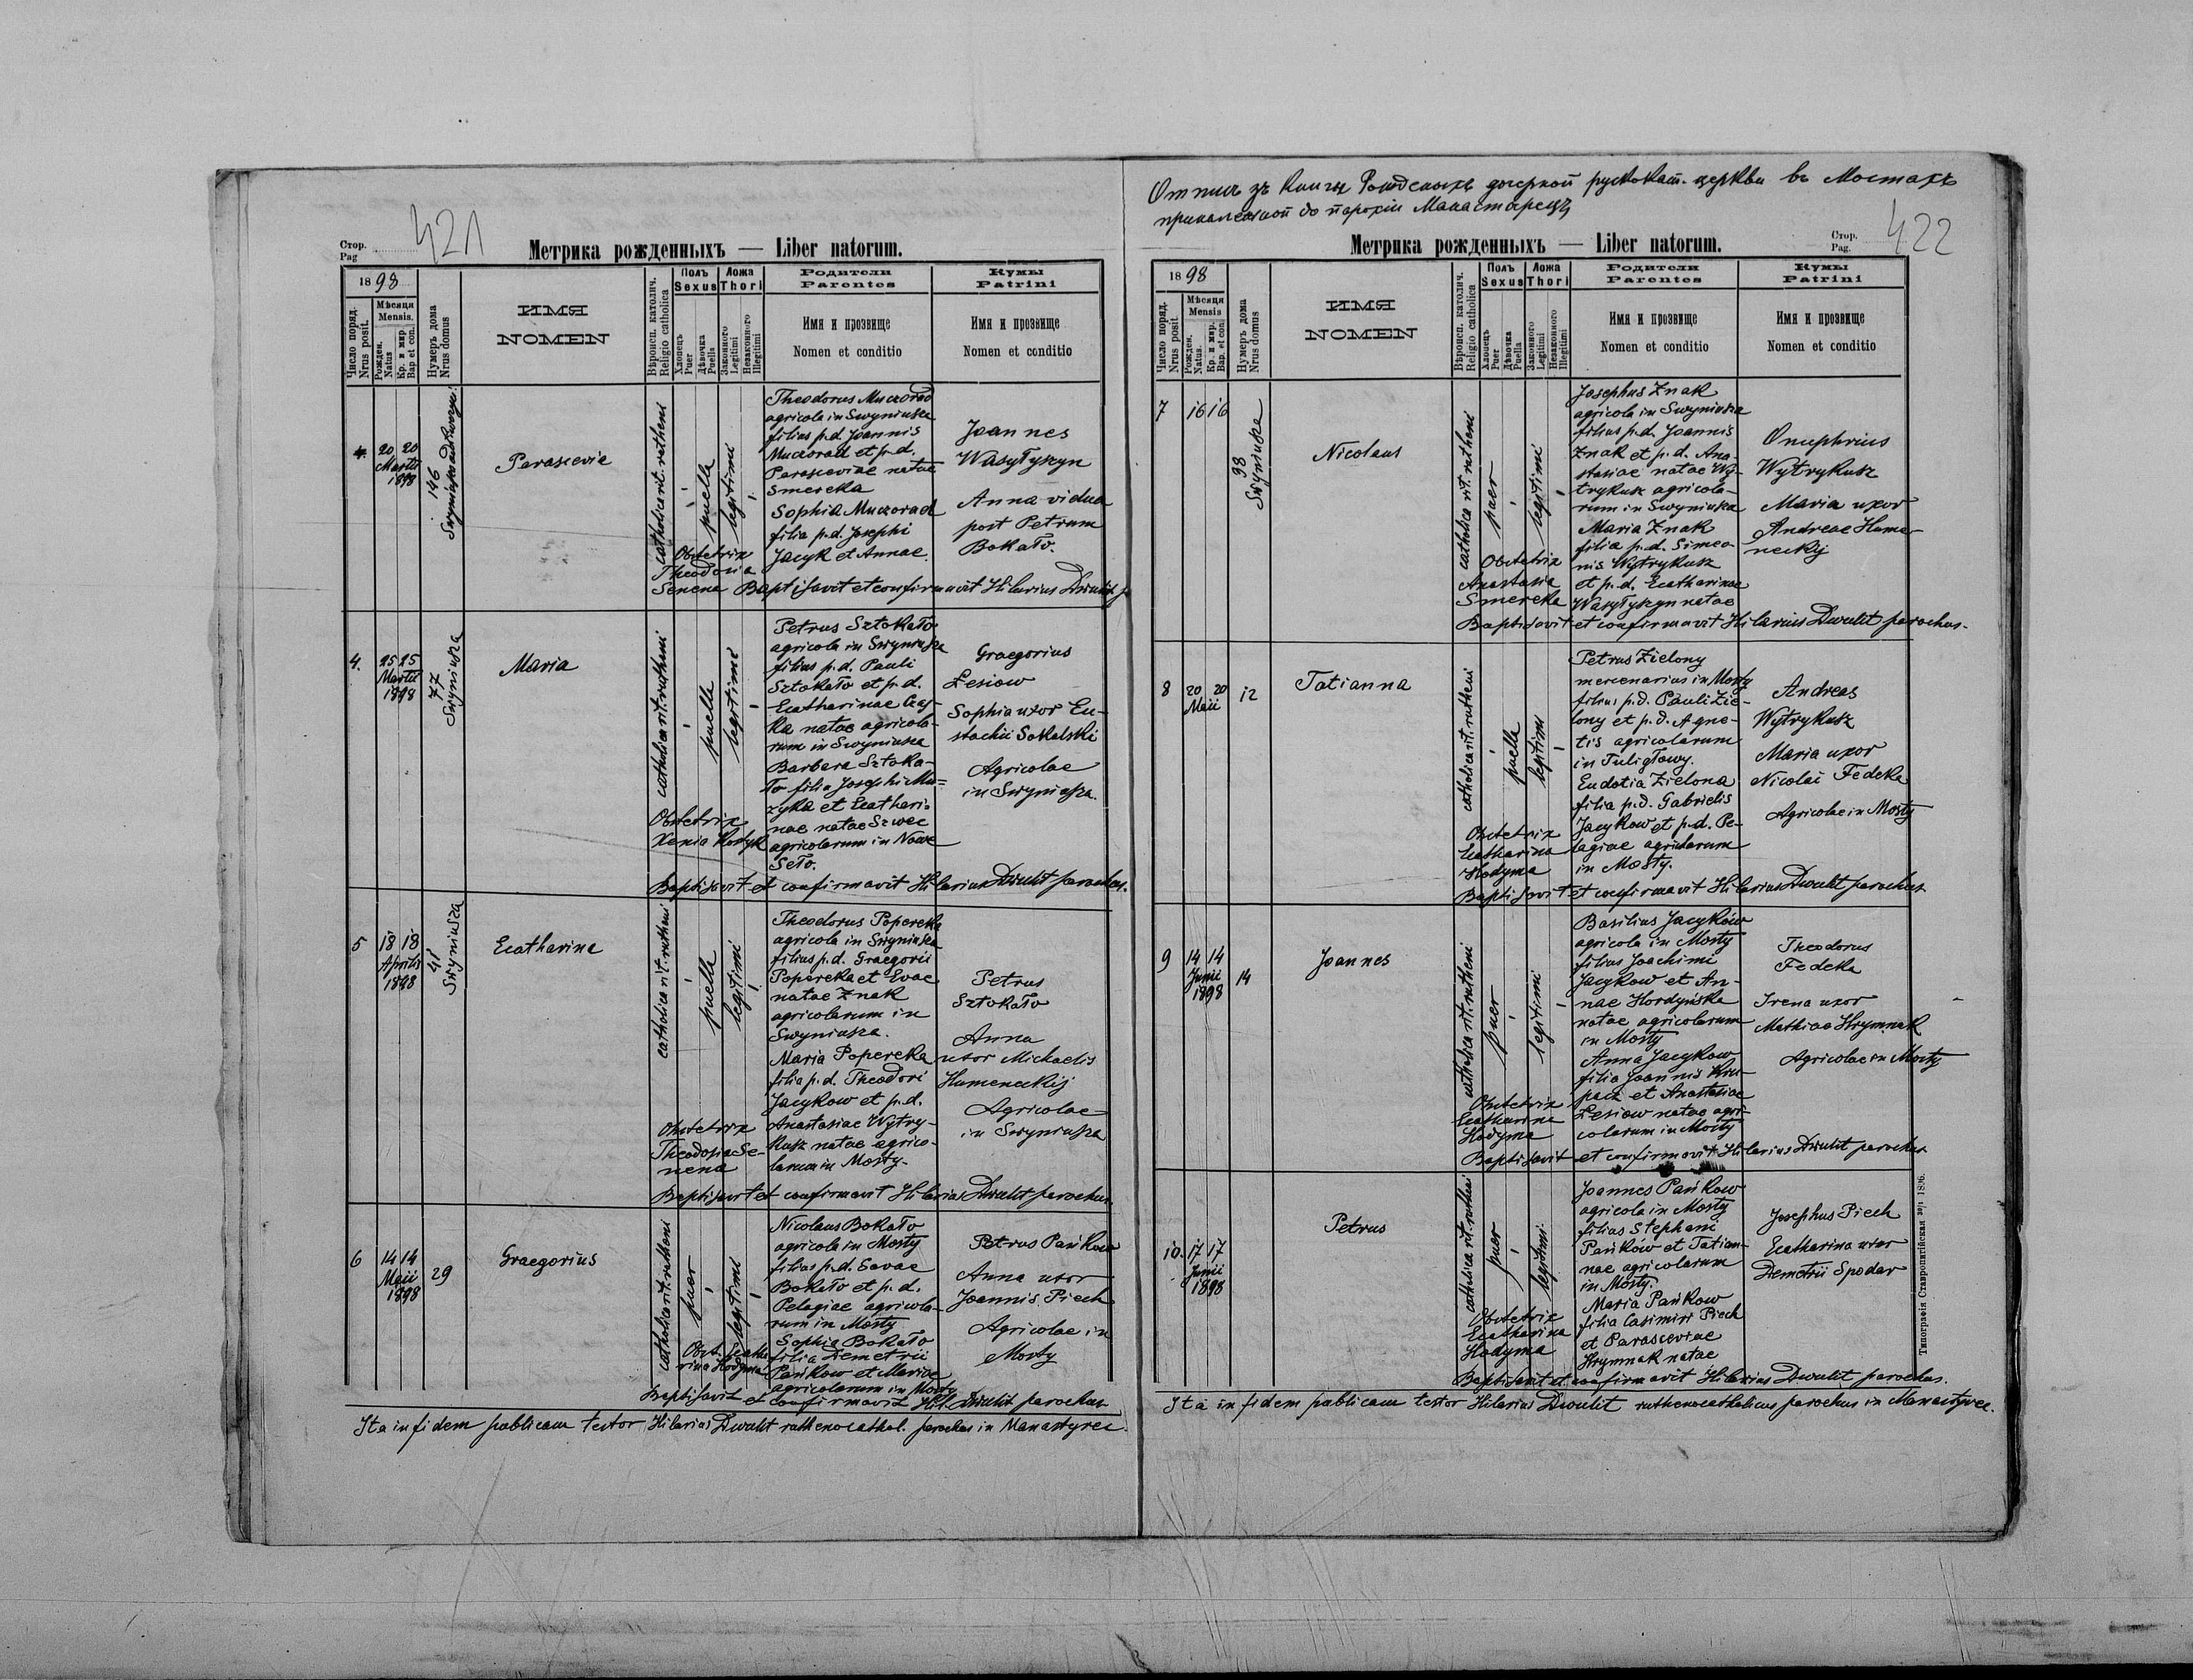 Стор.
Pag
421
Метрика рожденныхъ — Liber natorum.
1898
Число поряд.
Nrus posit.
Мѣсяця
Mensis.
Рожден.
Natus
Кр. и мир.
Bap et con.
Нумеръ дома
Nrus domus
ИМЯ
NOMEN
Вѣроисп. католич.
Religio catholica
Полъ
Sexus
Хлопецъ
Puer
Дѣвочка
Puella
Ложа
Thori
Законного
Legitimi
Незаконного
Illegitimi
Родители
Parentes
Имя и прозвище
Nomen et conditio
Кумы
Patrini
Имя и прозвище
Nomen et conditio
4.
20 20
Martii
1898
146
Parascevia
catholica rit. rutheni
puella
legitimi
Theodorus Muczorad
agricola in Swyniusza
filius p.d. Joannis
Muczorad et p.d.
Parasceviae natae
Smereka
Sophia Muczorad
filia p.d. Josephi
Jacyk et Annae.
Joannes
Wasyłyszyn
Anna vidua
post Petrum
Bokało.
Obstetrix
Theodosia
Senena
Baptisavit et confirmavit Hilarius Dwulit
4.
25 25
Martii
1898
77
Swyniusza
Maria
catholica rit. rutheni
puella
legitimi
Petrus Sztokało
agricola in Swyniusza
filius p.d. Pauli
Sztokało et p.d.
Ecatharinae
ka natae agricola-
rum in Swyniusza
Barbara Sztoka-
ło filia Josephi Mu=
zyka et Ecathari-
nae natae Szwec
agricolarum in Nowe
Seło.
Graegorius
Lesiow
Sophia uxor Eu-
stachii Sokalski
Agricolae
in Swyniusza.
Obstetrix
Xenia Kostyk
Baptisavit et confirmavit Hilarius Dwulit parochus.
5
18 18
Aprilis
1898
41
Swyniusza
Ecatharina
catholica rit. rutheni
puella
legitimi
Theodorus Popereka
agricola in Swyniusza
filius p.d. Graegorii
Popereka et Evae
natae Znak
agricolarum in
Swyniusza.
Maria Popereka
filia p.d. Theodori
Jacykow et p.d.
Anastasiae Wytry-
kusz natae agrico-
larum in Mosty.
Petrus
Sztokało
Anna
uxor Michaelis
Humeneckij
Agricolae
in Swyniusza
Obstetrix
Theodosia Se-
nena
Baptisavit et confirmavit Hilarius Dwulit parochus.
6
14 14
Maii
1898
29
Graegorius
catholica rit. rutheni
puer
legitimi
Nicolaus Bokało
agricola in Mosty
filius p.d. Savae
Bokało et p.d.
Pelagiae agricola-
rum in Mosty
Sophia Bokało
filia Demetrii
Pańkow et Mariae
agricolarum in Mosty
Petrus Pańkow
Anna uxor
Joannis Piech
Agricolae in
Mosty
Obst. Ecatha
rina Hodyma
Baptisavit et confirmavit Hil. Dwulit parochus
Ita in fidem publicam testor Hilarius Dwulit ruthenocathol. parochus in Manastyrec.
Отпись зъ Книги Рожденыхъ дочерной рускокат. церкви въ Мостахъ
приналежной до парохіи Манастырецъ
Метрика рожденныхъ — Liber natorum.
Стор.
Pag.
422
1898
Число поряд.
Nrus posit.
Мѣсяця
Mensis
Рожден.
Natus.
Кр. и мир.
Bap. et con.
Нумеръ дома
Nrus domus
ИМЯ
NOMEN
Вѣроисп. католич.
Religio catholica
Полъ
Sexus
Хлопецъ
Puer
Дѣвочка
Puella
Ложа
Thori
Законного
Legitimi
Незаконного
Illegitimi
Родители
Parentes
Имя и прозвище
Nomen et conditio
Кумы
Patrini
Имя и прозвище
Nomen et conditio
7
16 16
98
Swyniusza
Nicolaus
catholica rit. rutheni
puer
legitimi
Josephus Znak
agricola in Swyniusza
filius p.d. Joannis
Znak et p.d. Ana-
stasiae natae Wy-
trykusz agricola-
rum in Swyniusza
Maria Znak
filia p.d. Simeo-
nis Wytrykusz
et p.d. Ecatharinae
Wasyłyszyn natae
Onuphrius
Wytrykusz
Maria uxor
Andreae Hume-
neckij
Obstetrix
Anastasia
Smereka
Baptisavit et confirmavit Hilarius Dwulit parochus.
8
20 20
Maii
12
Tatianna
catholica rit. rutheni
puella
legitimi
Petrus Zielony
mercenarius in Mosty
filius p.d. Pauli Zie-
lony et p.d. Agne-
tis agricolarum
in Tuligłowy.
Eudotia Zielona
filia p.d. Gabrielis
Jacykow et p.d. Pe-
lagiae agricolarum
in Mosty.
Andreas
Wytrykusz
Maria uxor
Nicolai Fedeka
Agricolae in Mosty
Obstetrix
Ecatharina
Hodyma
Baptisavit et confirmavit Hilarius Dwulit parochus.
9
14 14
Junii
1898
14
Joannes
catholica rit. rutheni
puer
legitimi
Basilius Jacyków
agricola in Mosty
filius Joachimi
Jacykow et An-
nae Hordyńska
natae agricolarum
in Mosty
Anna Jacykow
filia Joannis Kru-
pacz et Anastasiae
Lesiow natae agri-
colarum in Mosty
Theodorus
Fedeka
Irena uxor
Mathiae Hrymnak
Agricolae in Mosty
Obstetrix
Ecatharina
Hodyma
Baptisavit et confirmavit Hilarius Dwulit parochus
10.
17 17
Junii
1898
Petrus
catholica rit. rutheni
puer
legitimi
Joannes Pańkow
agricola in Mosty
filius Stephani
Pańków et Tatian-
nae agricolarum
in Mosty.
Maria Pańkow
filia Casimiri Piech
et Parasceviae
Hrymnak natae
Josephus Piech
Ecatharina uxor
Demetrii Spodar
Obstetrix
Ecatharina
Hodyma
Baptisavit et confirmavit Hilarius Dwulit parochus.
Ita in fidem publicam testor Hilarius Dwulit ruthenocatholicus parochus in Manastyrec.
Типографія Ставропигійская 1896.